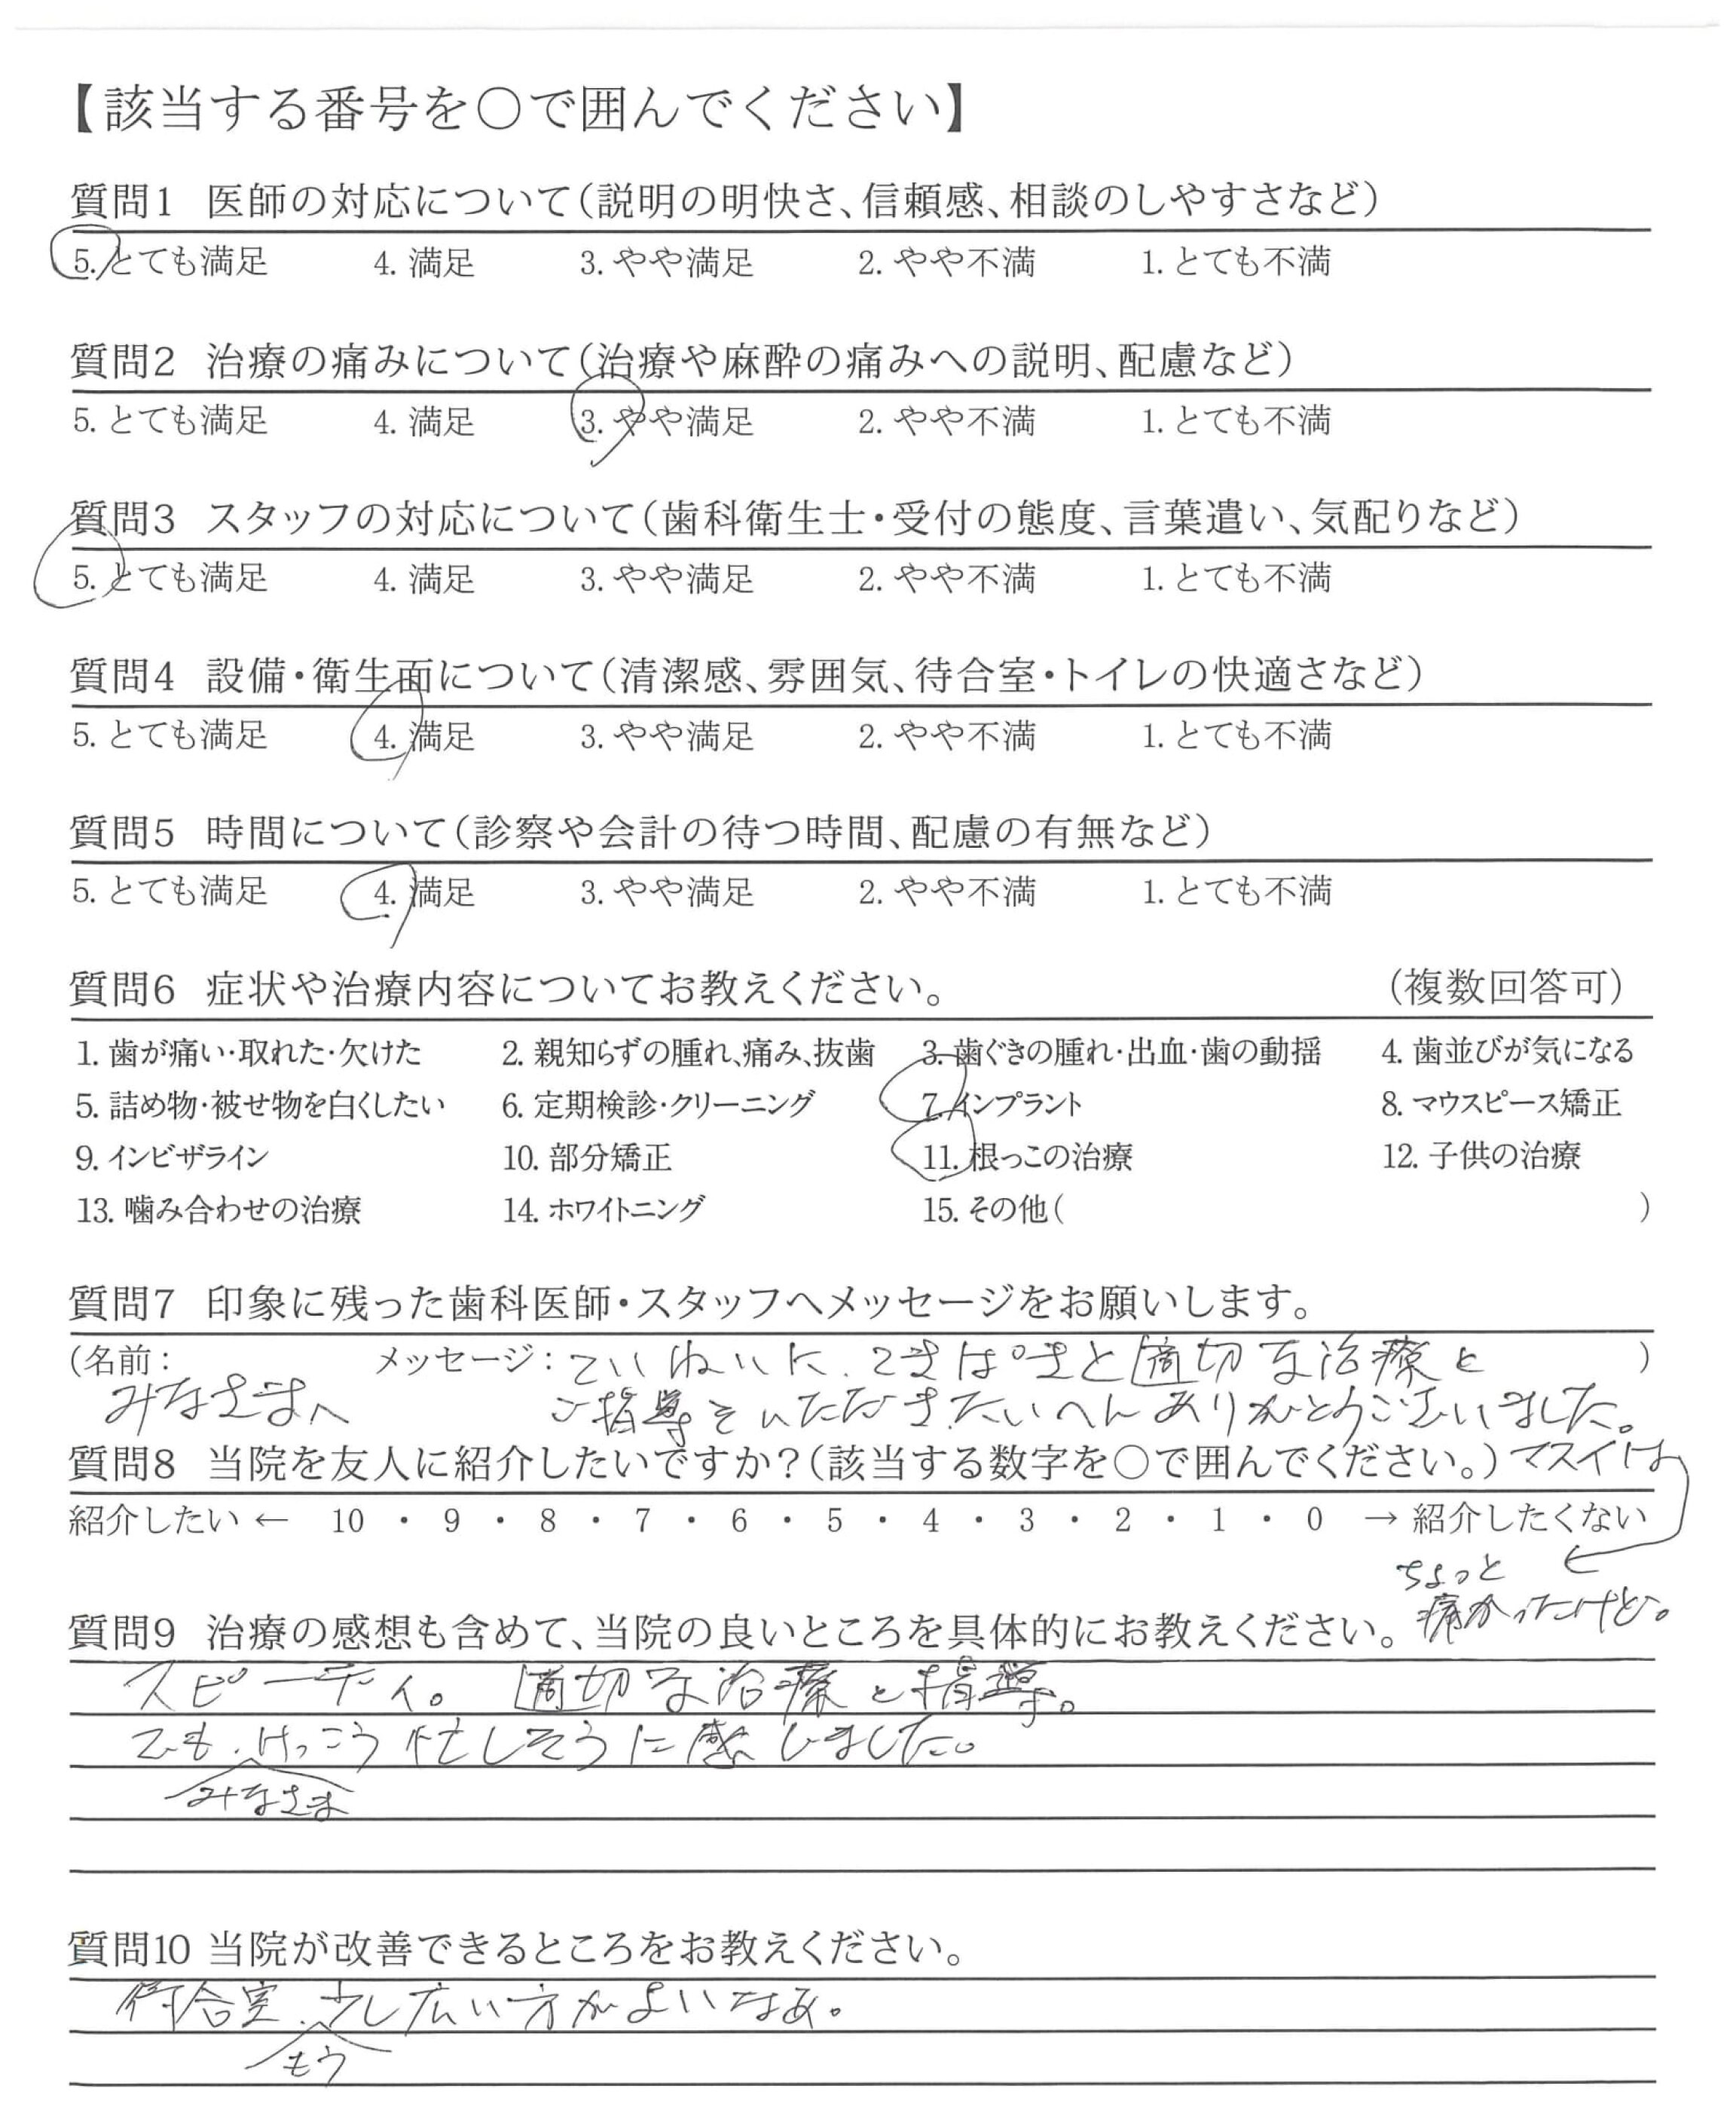 【該当する番号を○で囲んでください】
質問1 医師の対応について(説明の明快さ、信頼感、相談のしやすさなど)
5. とても満足 4. 満足 3. やや満足 2. やや不満 1. とても不満
質問2 治療の痛みについて(治療や麻酔の痛みへの説明、配慮など)
5. とても満足 4. 満足 3. やや満足 2. やや不満 1. とても不満
質問3 スタッフの対応について(歯科衛生士・受付の態度、言葉遣い、気配りなど)
5. とても満足 4. 満足 3. やや満足 2. やや不満 1. とても不満
質問4 設備・衛生面について(清潔感、雰囲気、待合室・トイレの快適さなど)
5. とても満足 4. 満足 3. やや満足 2. やや不満 1. とても不満
質問5 時間について(診察や会計の待つ時間、配慮の有無など)
5. とても満足 4. 満足 3. やや満足 2. やや不満 1. とても不満
質問6 症状や治療内容についてお教えください。 (複数回答可)
1. 歯が痛い・取れた・欠けた 2. 親知らずの腫れ、痛み、抜歯 3. 歯ぐきの腫れ・出血・歯の動揺 4. 歯並びが気になる
5. 詰め物・被せ物を白くしたい 6. 定期検診・クリーニング 7. インプラント 8. マウスピース矯正
9. インビザライン 10. 部分矯正 11. 根っこの治療 12. 子供の治療
13. 噛み合わせの治療 14. ホワイトニング 15. その他( )
質問7 印象に残った歯科医師・スタッフへメッセージをお願いします。
(名前: メッセージ: ていねいに、てきぱきと適切な治療と )
みなさまへ ご指導をいただきたいへんありがとうございました。
質問8 当院を友人に紹介したいですか?(該当する数字を○で囲んでください。) マスイは
紹介したい ← 10 ・ 9 ・ 8 ・ 7 ・ 6 ・ 5 ・ 4 ・ 3 ・ 2 ・ 1 ・ 0 → 紹介したくない
ちょっと
痛かったけど。
質問9 治療の感想も含めて、当院の良いところを具体的にお教えください。
スピーディ。 適切な治療と指導。
でも、けっこう忙しそうに感じました。
みなさま
質問10 当院が改善できるところをお教えください。
待合室、少し広い方がよいなあ。
もう